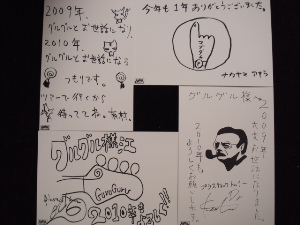 2009年、
グルグルとお世話になり、
2010年、
グルグルとお世話になる
つもりです。
ツアーで行くから
待っててね。
今年も1年ありがとうございました。
ナカヤマ アキラ
グルグル横江
GuruGuru
2010年もよろしく!!
グルグル様へ
2009年
大変お世話になりました。
2010年も
よろしくお願いします。